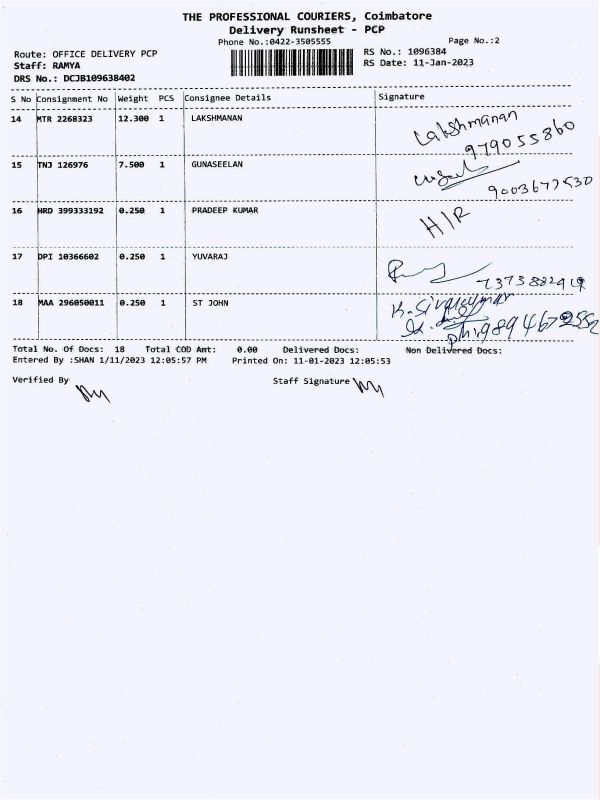 THE PROFESSIONAL COURIERS, Coimbatore
Delivery Runsheet - PCP
Phone No.:0422-3505555
Page No.:2
Route: OFFICE DELIVERY PCP
RS No.: 1096384
Staff: RAMYA
RS Date: 11-Jan-2023
DRS No.: DCJB109638402
S No Consignment No Weight PCS Consignee Details Signature
14 MTR 2268323 12.300 1 LAKSHMANAN Lakshmanan
979055860
15 TNJ 126976 7.500 1 GUNASEELAN
9003677530
16 HRD 399333192 0.250 1 PRADEEP KUMAR H/R
17 DPI 10366602 0.250 1 YUVARAJ
18 MAA 296050011 0.250 1 ST JOHN
Total No. Of Docs: 18 Total COD Amt: 0.00 Delivered Docs: Non Delivered Docs:
Entered By :SHAN 1/11/2023 12:05:57 PM Printed On: 11-01-2023 12:05:53
Verified By Staff Signature